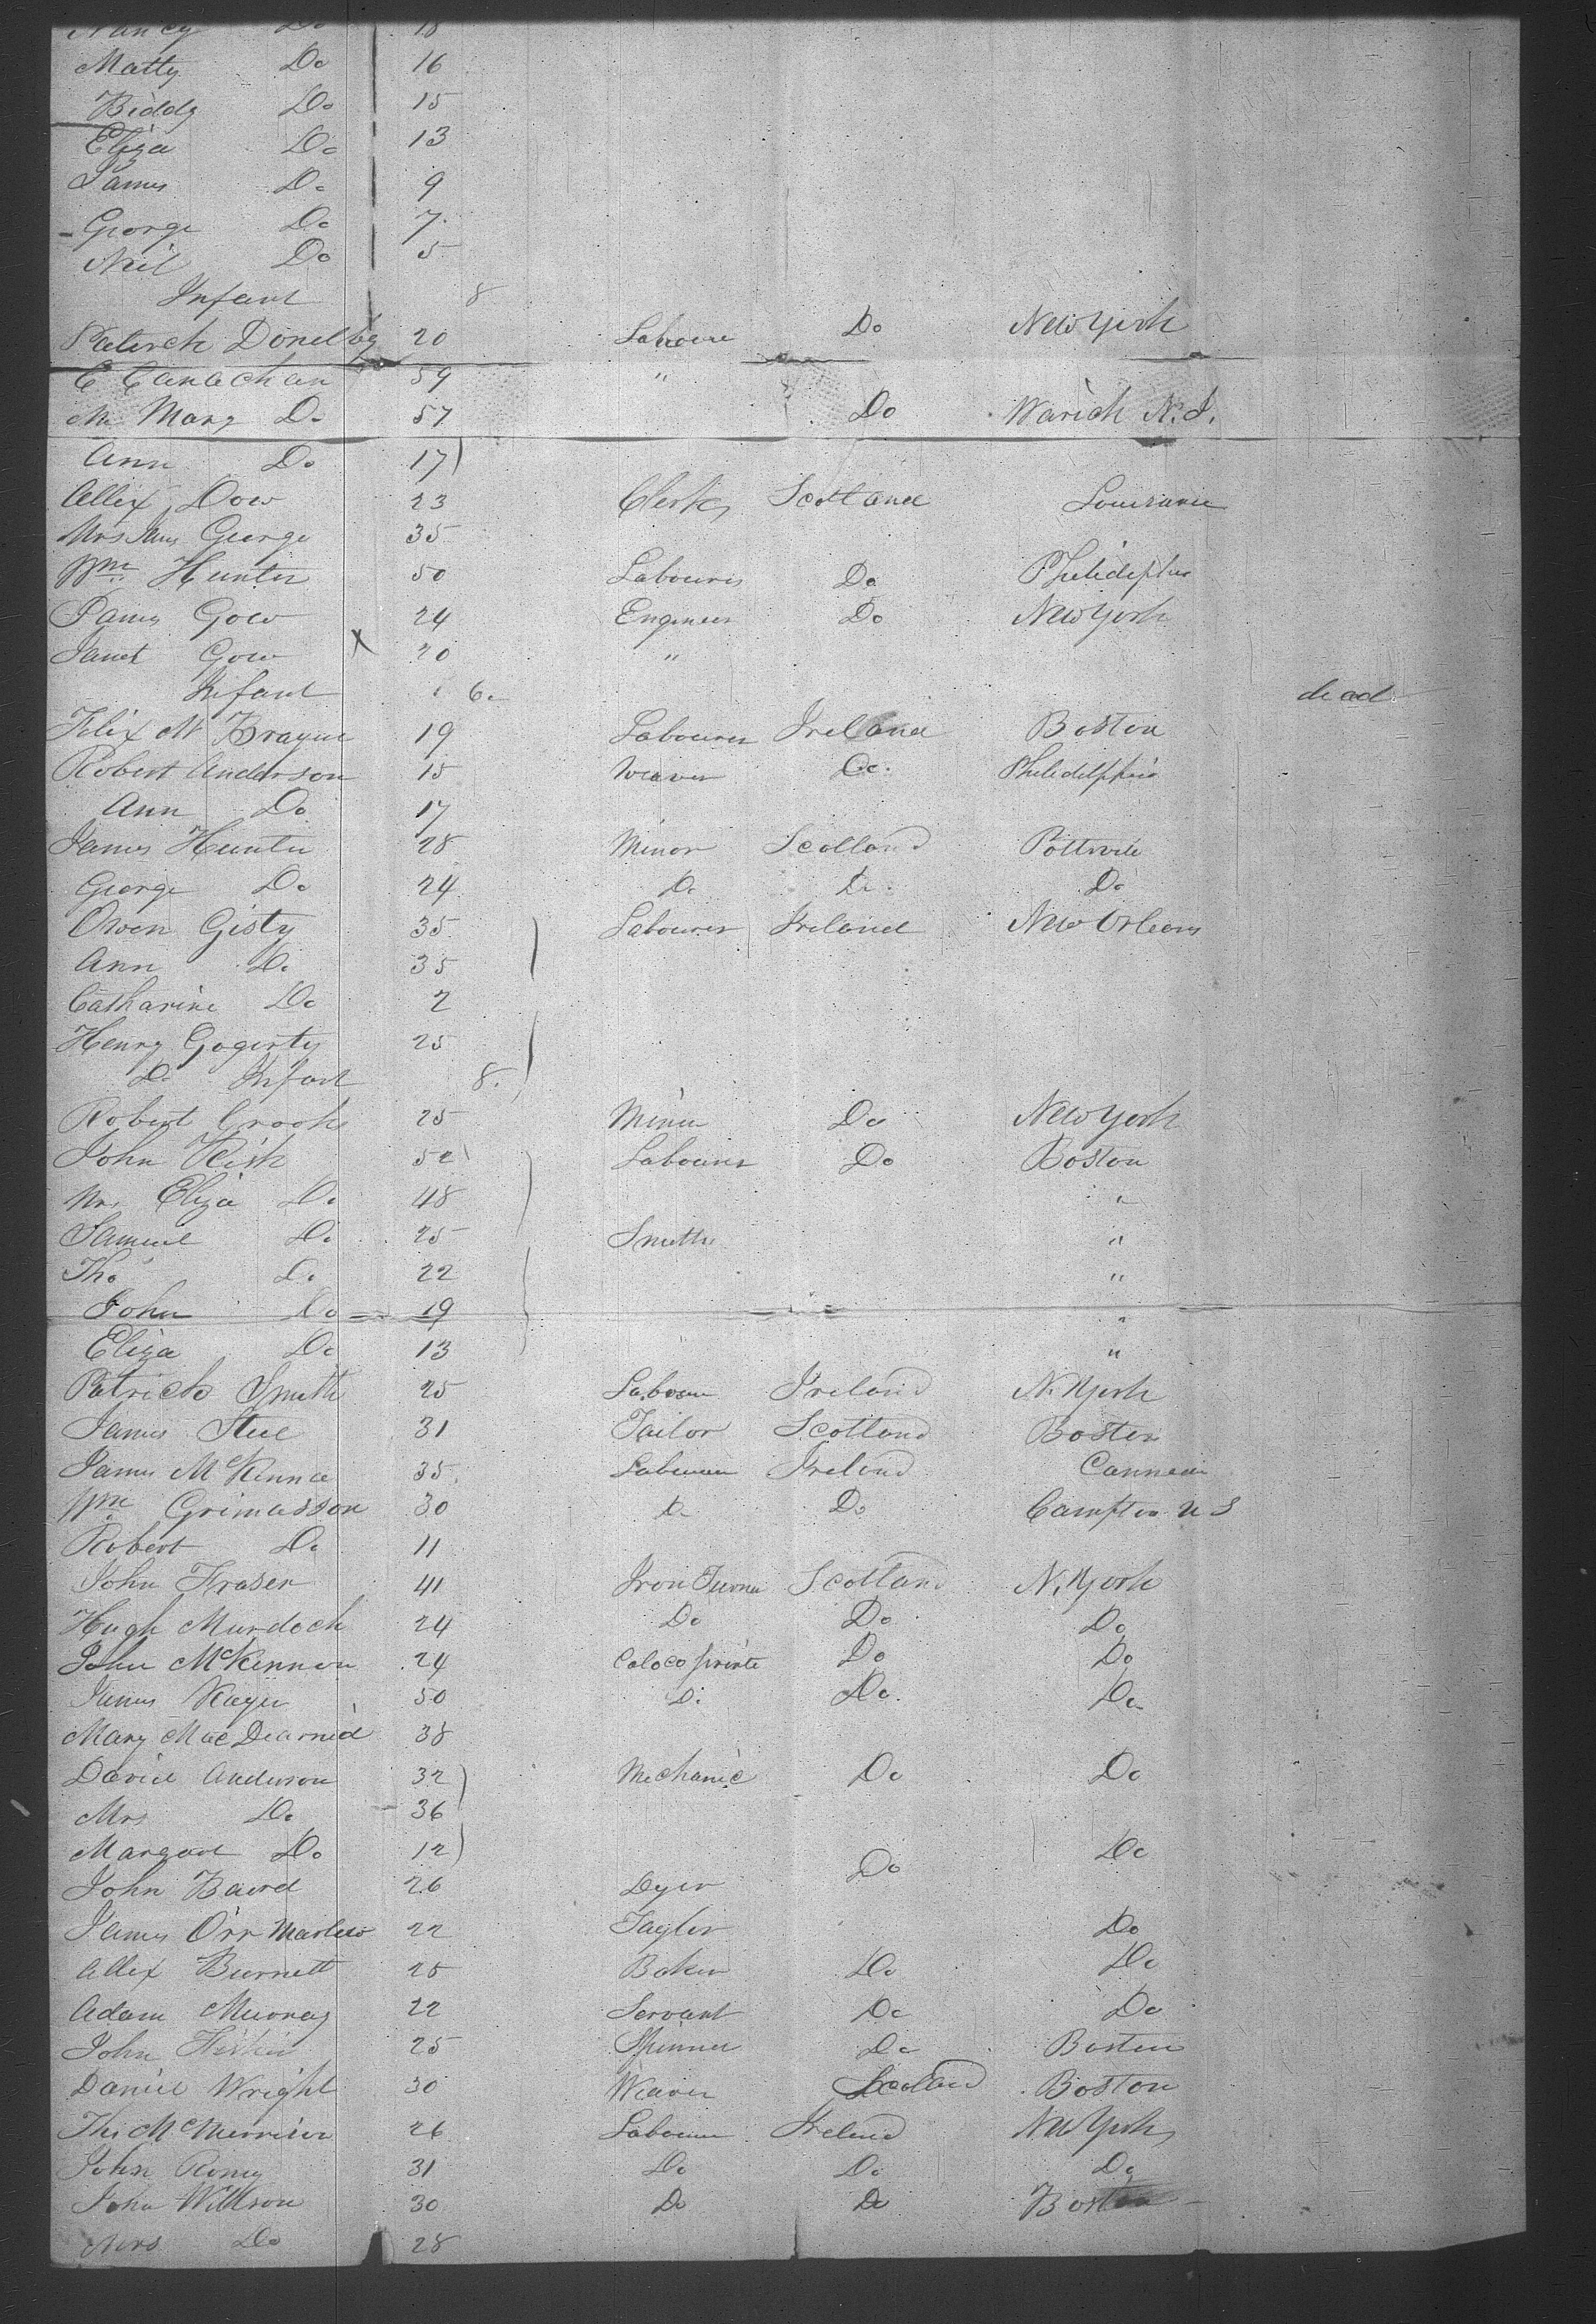 Nancy Do 18
Matty Do 16
Biddy Do 15
Eliza Do 13
James Do 9
George Do 7
Neil Do 5
Infant 8
Patirck Donelby 20 Laboure Do New York
C Canachan 59 "
Mary Do 57 Do Warich N.J.
Ann Do 17
Allex Dow 23 Clerk Scotland Louisana
Mrs George 35
Wm Hunter 50 Labourer Do Philidelphia
James Gow 24 Engineer Do New York
Janet Gow X 20 "
Infant 6 dead
Felix Mc Brayne 19 Labourer Ireland Boston
Robert Anderson 15 Weaver Do Philidelphia
Ann Do 17
James Hunter 28 Minor Scotland Pottsvile
George Do 24 Do Do Do
Owen Gisty 35 Labourer Ireland New Orleans
Ann Do 35
Catharine Do 2
Henry Gogerty 25
Do Infant 8
Robert Crooks 25 Miner Do New York
John Kish 52 Labourer Do Boston
Mrs Eliza Do 48 "
Samuel Do 25 Smith "
Tho Do 22 "
John Do 19 "
Eliza Do 13 "
Patrick Smith 25 Labour Ireland N. York
James Steel 31 Tailor Scotland Boston
James McKenna 35 Labourer Ireland
Wm Grimasson 30 Do Do Campton U S
Robert Do 11
John Fraser 41 Iron Turner Scotland N. York
Hugh Murdoch 24 Do Do Do
John McKinnon 24 Do Do
James Kayer 50 Do Do Do
Mary MacDearmid 38
David Anderson 32 Mechanic Do Do
Mrs Do 36
Margaret Do 12 Do
John Baird 26 Dyer Do
James Orr 22 Taylor Do
Allex Burnett 25 Baker Do Do
Adam Murray 22 Servant Do Do
John 25 Spinner Do Boston
Daniel Wright 30 Weaver Scotland Boston
Tho McMorrison 26 Labourer Ireland New York
John Romy 31 Do Do Do
John Willson 30 Do Do Boston
Mrs Do 28